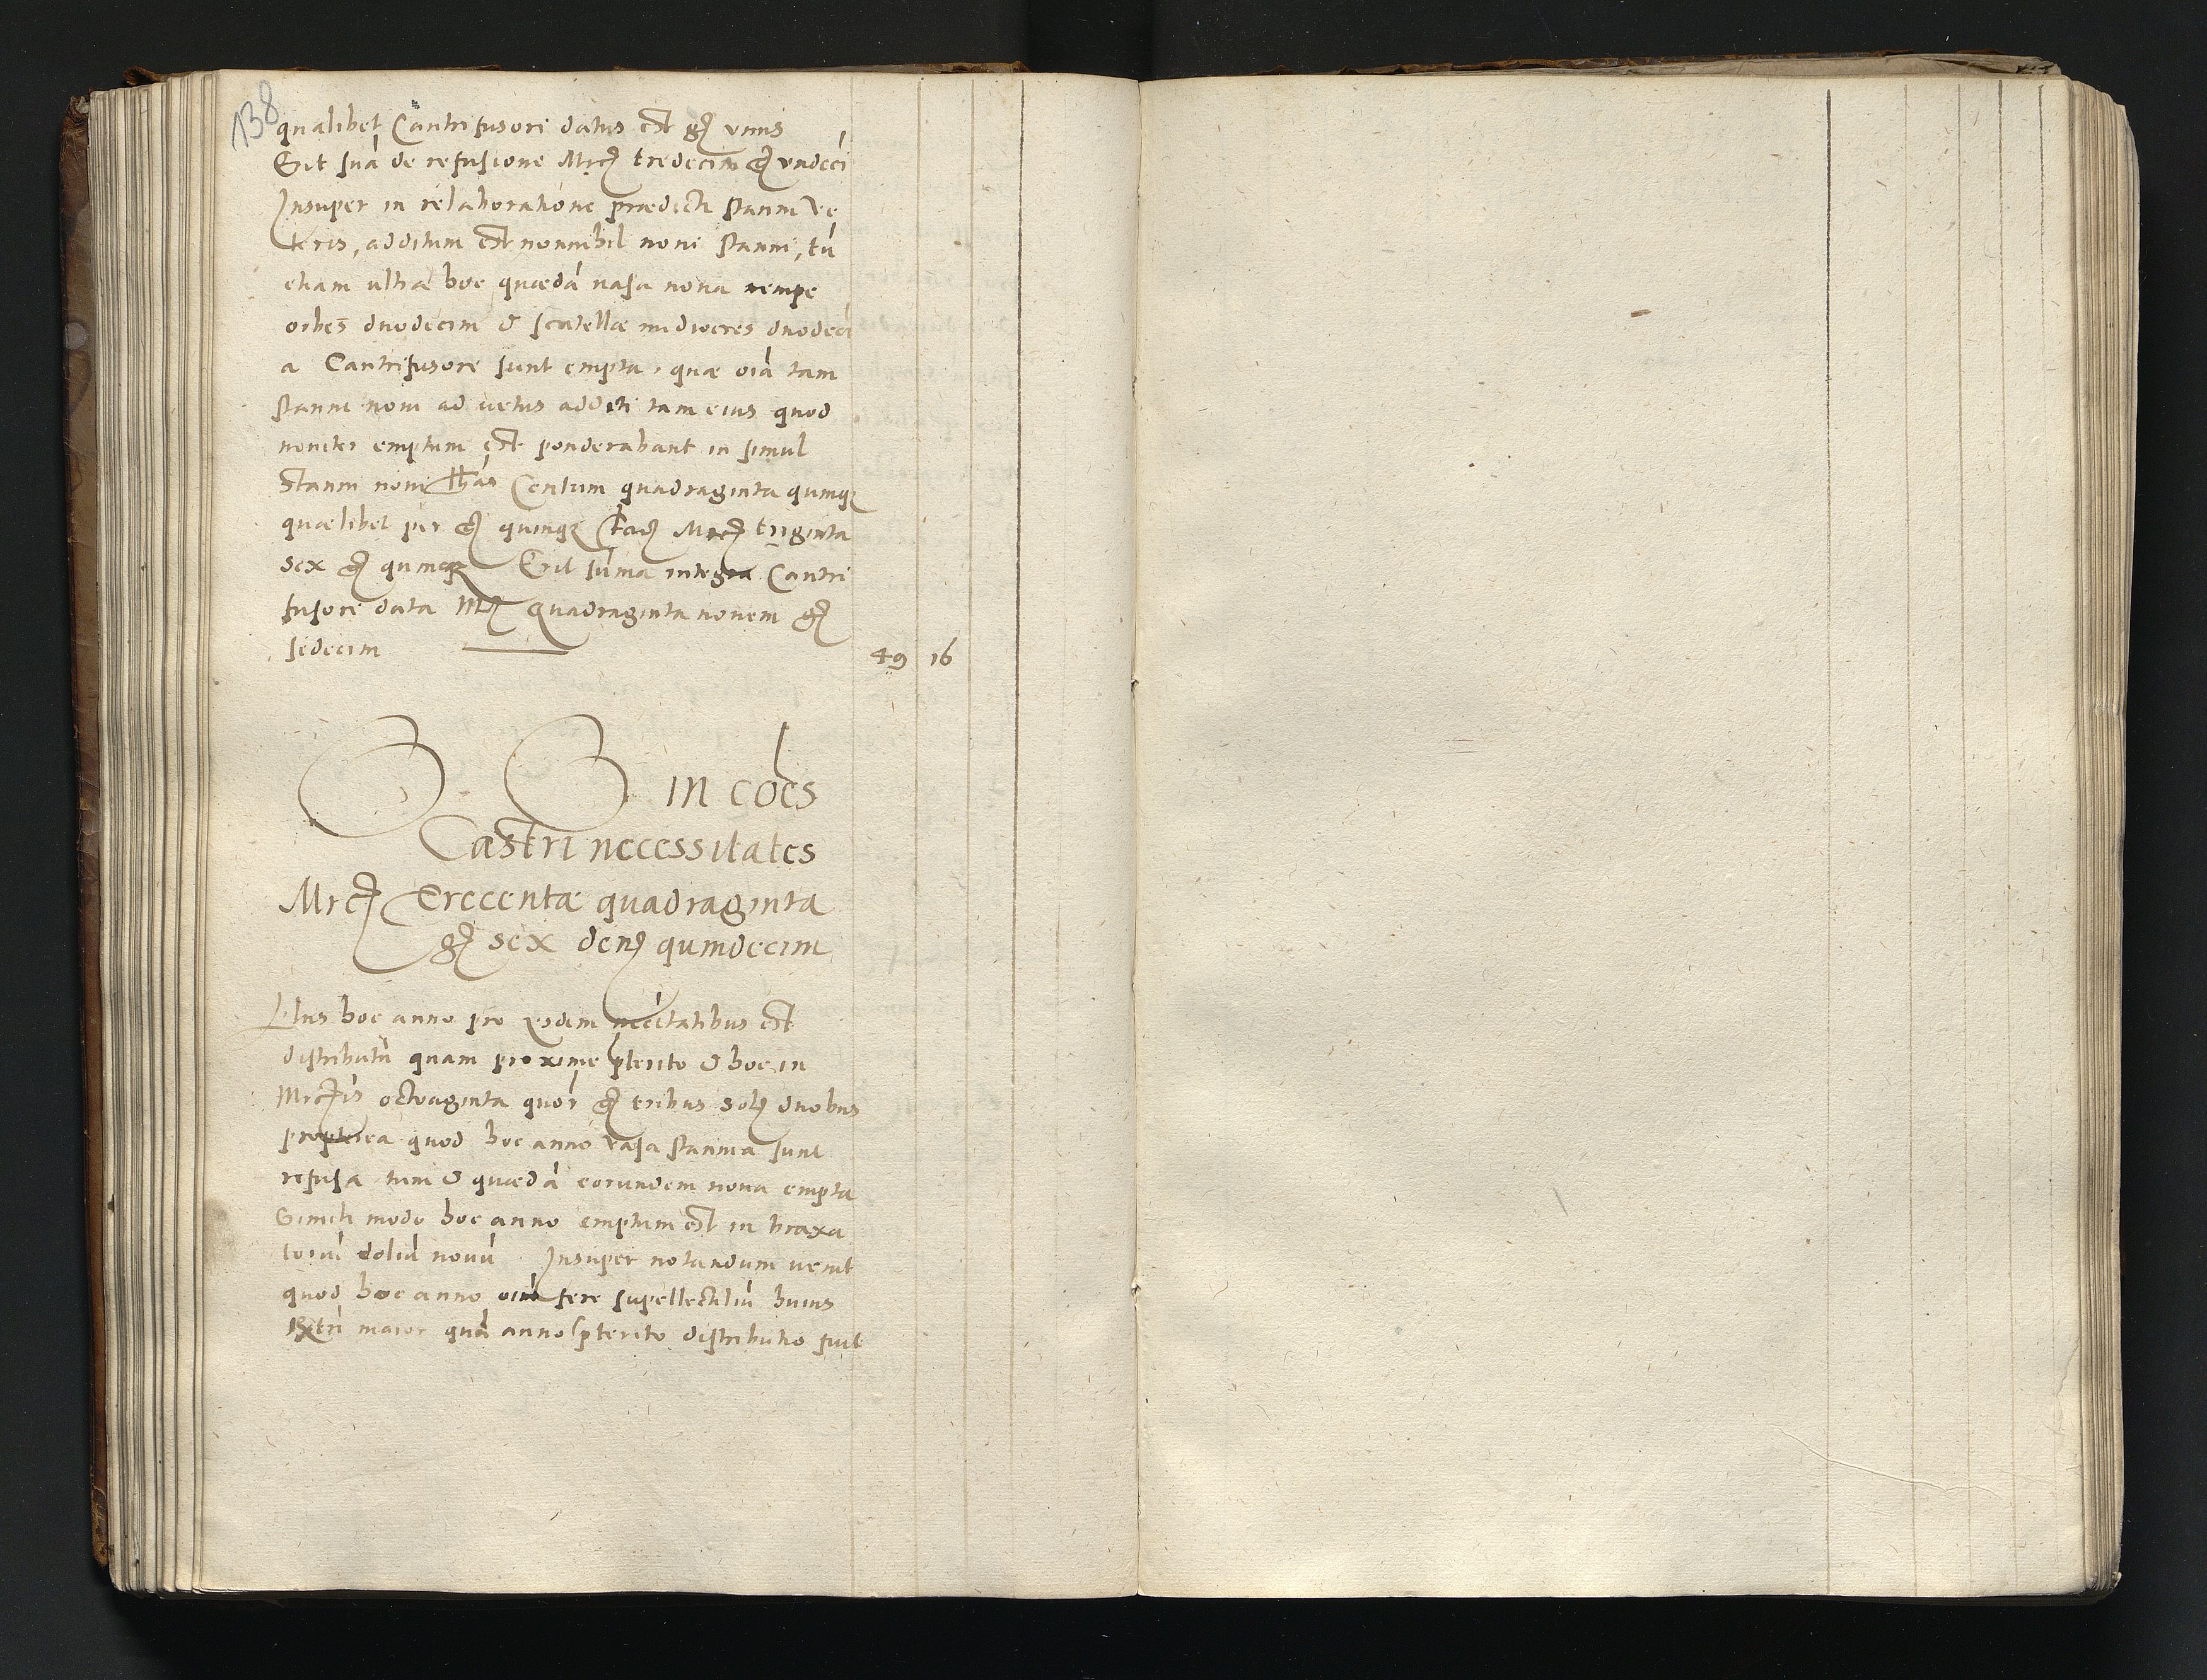 138
qualibet Cantrifusori datus est gs vnus
Erit sua de refusione Mrcs tredecim gs vndeci
Insuper in relaboratione praedicti stanni ve
teris, additum est nonnihil noui stanni, tu
etiam ultra hoc quaeda uasa noua nempe
orbes duodecim & scutellae mediocres duodeci
a Cantrifusore sunt empta, quae oia tam
stanni noui ad uetus additi tam eius quod
nouiter emptum est ponderabant in simul
Stanni noui Centum quadraginta quinqz
quaelibet per gs quinqz facis Mrcs triginta
sex gs quinqz Erit suma integra Cantri
fusori data Mrs quadraginta nouem gs
sedecim 49 16
in coes
Castri necessitates
Mrcs Trecentae quadraginta
gs sex dens quindecim
Plus hoc anno pro eisdem necitatibus est
distributu quam proxime pterito & hoc in
Mrcis octoaginta quor gs tribus sols duobus
propterea quod hoc anno vasa stannea sunt
refusa tum & quaeda eorundem noua empta
Simili modo hoc anno emptum est in braxa
toriu doliu nouu Insuper notandum uenit
quod hoc anno oiu fere supellectiliu huius
maior qua anno pterito distributio fuit